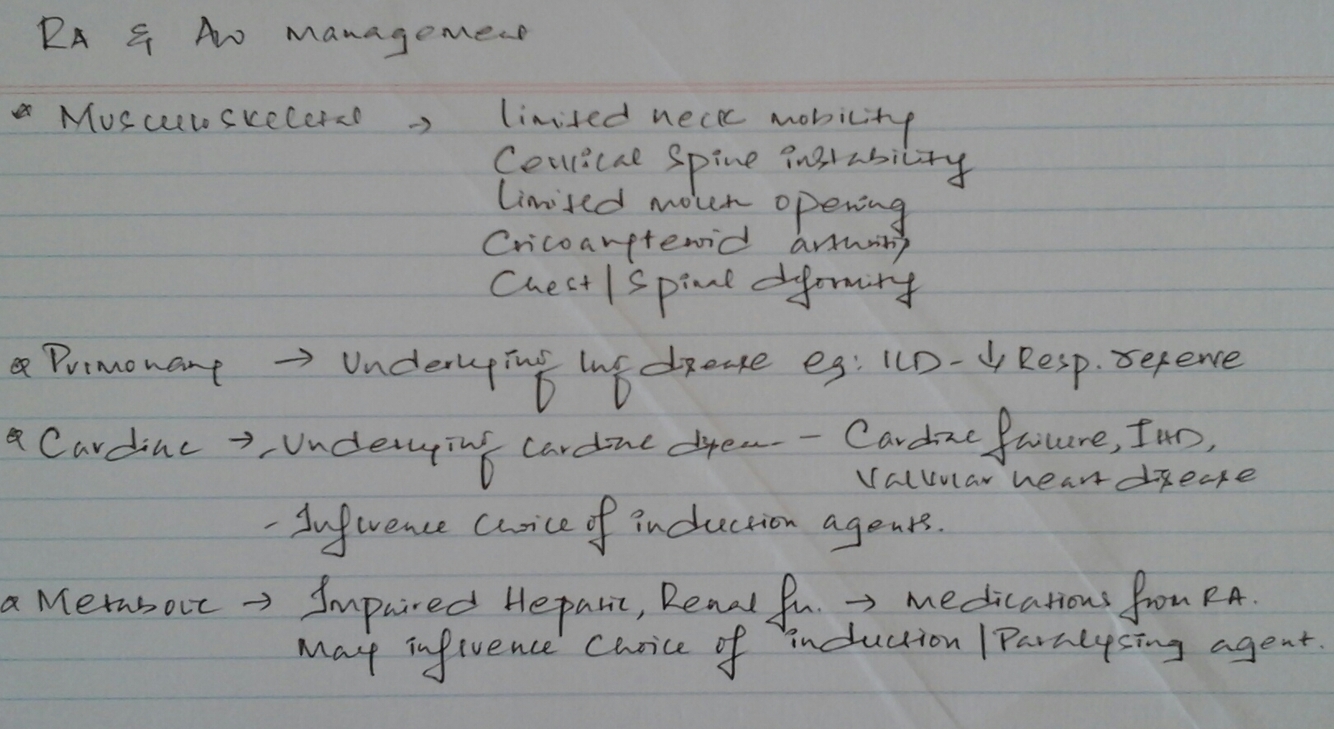 RA & Aw management
* Musculoskeletal → limited neck mobility
Cervical spine instability
Limited mouth opening
Cricoarytenoid arthritis
Chest | Spinal deformity
* Pulmonary → Underlying lung disease eg: ILD - ↓ Resp. reserve
* Cardiac → - Underlying cardiac disease - Cardiac failure, IHD,
Valvular heart disease
- Influence choice of induction agents.
* Metabolic → Impaired Hepatic, Renal fn. → medications from RA.
May influence choice of induction | Paralysing agent.